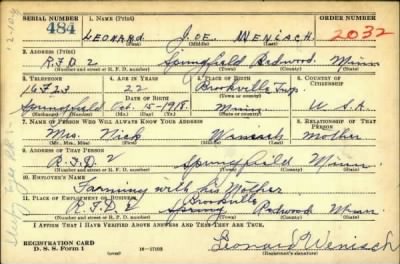 SERIAL NUMBER 1. NAME (Print) ORDER NUMBER
484 LEONARD JOE WENISCH 2032
(First) (Middle) (Last)
2. ADDRESS (Print)
R.F.D. 2 Springfield Redwood Minn
(Number and street or R. F. D. number) (Town) (County) (State)
3. TELEPHONE 4. AGE IN YEARS 5. PLACE OF BIRTH 6. COUNTRY OF CITIZENSHIP
16F23 22 Brookville Twp.
DATE OF BIRTH
Springfield Oct. 15-1918 Minn U.S.A.
(Exchange) (Number) (Mo.) (Day) (Yr.) (State or country)
7. NAME OF PERSON WHO WILL ALWAYS KNOW YOUR ADDRESS 8. RELATIONSHIP OF THAT PERSON
Mrs. Nick Wenisch Mother
(Mr., Mrs., Miss) (First) (Middle) (Last)
9. ADDRESS OF THAT PERSON
R.F.D. 2 Springfield Minn.
(Number and street or R. F. D. number) (Town) (County) (State)
10. EMPLOYER'S NAME
Farming with his Mother
11. PLACE OF EMPLOYMENT OR BUSINESS Brookville
R.F.D. 2 Spring Redwood Minn
(Number and street or R. F. D. number) (Town) (County) (State)
I AFFIRM THAT I HAVE VERIFIED ABOVE ANSWERS AND THAT THEY ARE TRUE.
REGISTRATION CARD
D. S. S. Form 1 Leonard Wenisch
(Registrant's signature)